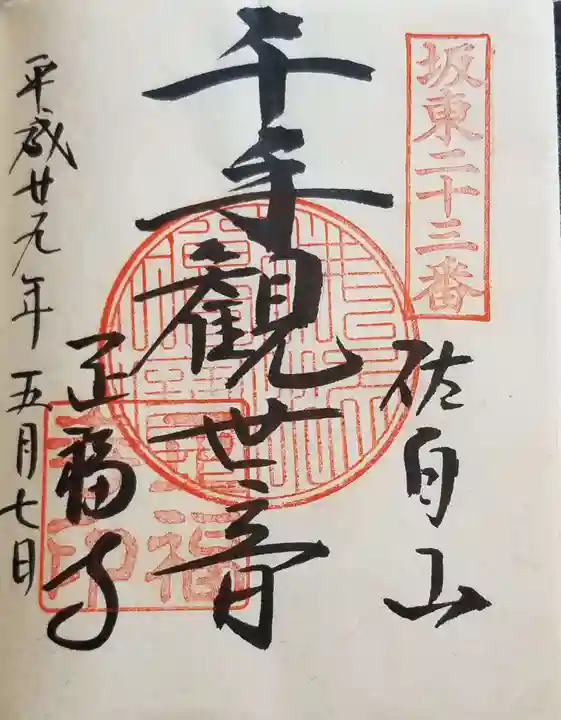 坂東二十三番
佐白山
千手觀世音
正福寺
平成廿九年五月七日